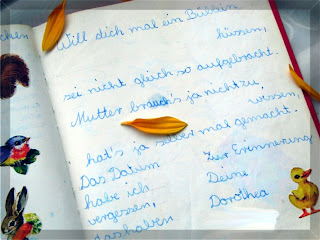 chen
Will dich mal ein Büblein
küssen,
sei nicht gleich so aufgebracht.
Mutter brauch's ja nicht zu
wissen,
hat's ja selber mal gemacht.
Das Datum
habe ich
vergessen,
deshalben
Zur Erinnerung
Deine
Dorothea